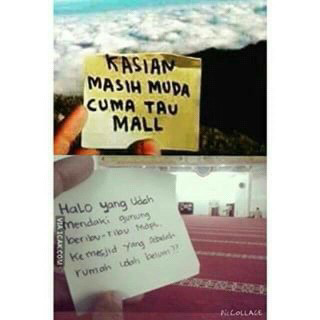 KASIAN
MASIH MUDA
CUMA TAU
MALL
Halo yang udah
mendaki gunung
beribu-ribu mdpl.
Ke mesjid yang sebelah
rumah udah belum??
VIA 1CAK.COM
PicCOLLAGE